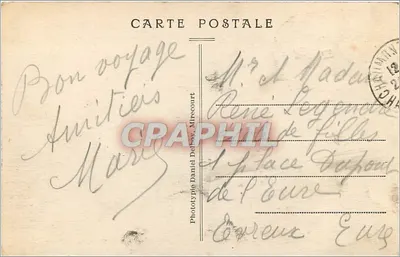 CARTE POSTALE
Bon voyage
Amitiés
Marc
Mr et Madame
René Legendre
de filles
1 place Dupont
de l'Eure
Evreux Eure
Phototypie Daniel Delboy, Mirecourt
CPAPHIL
12